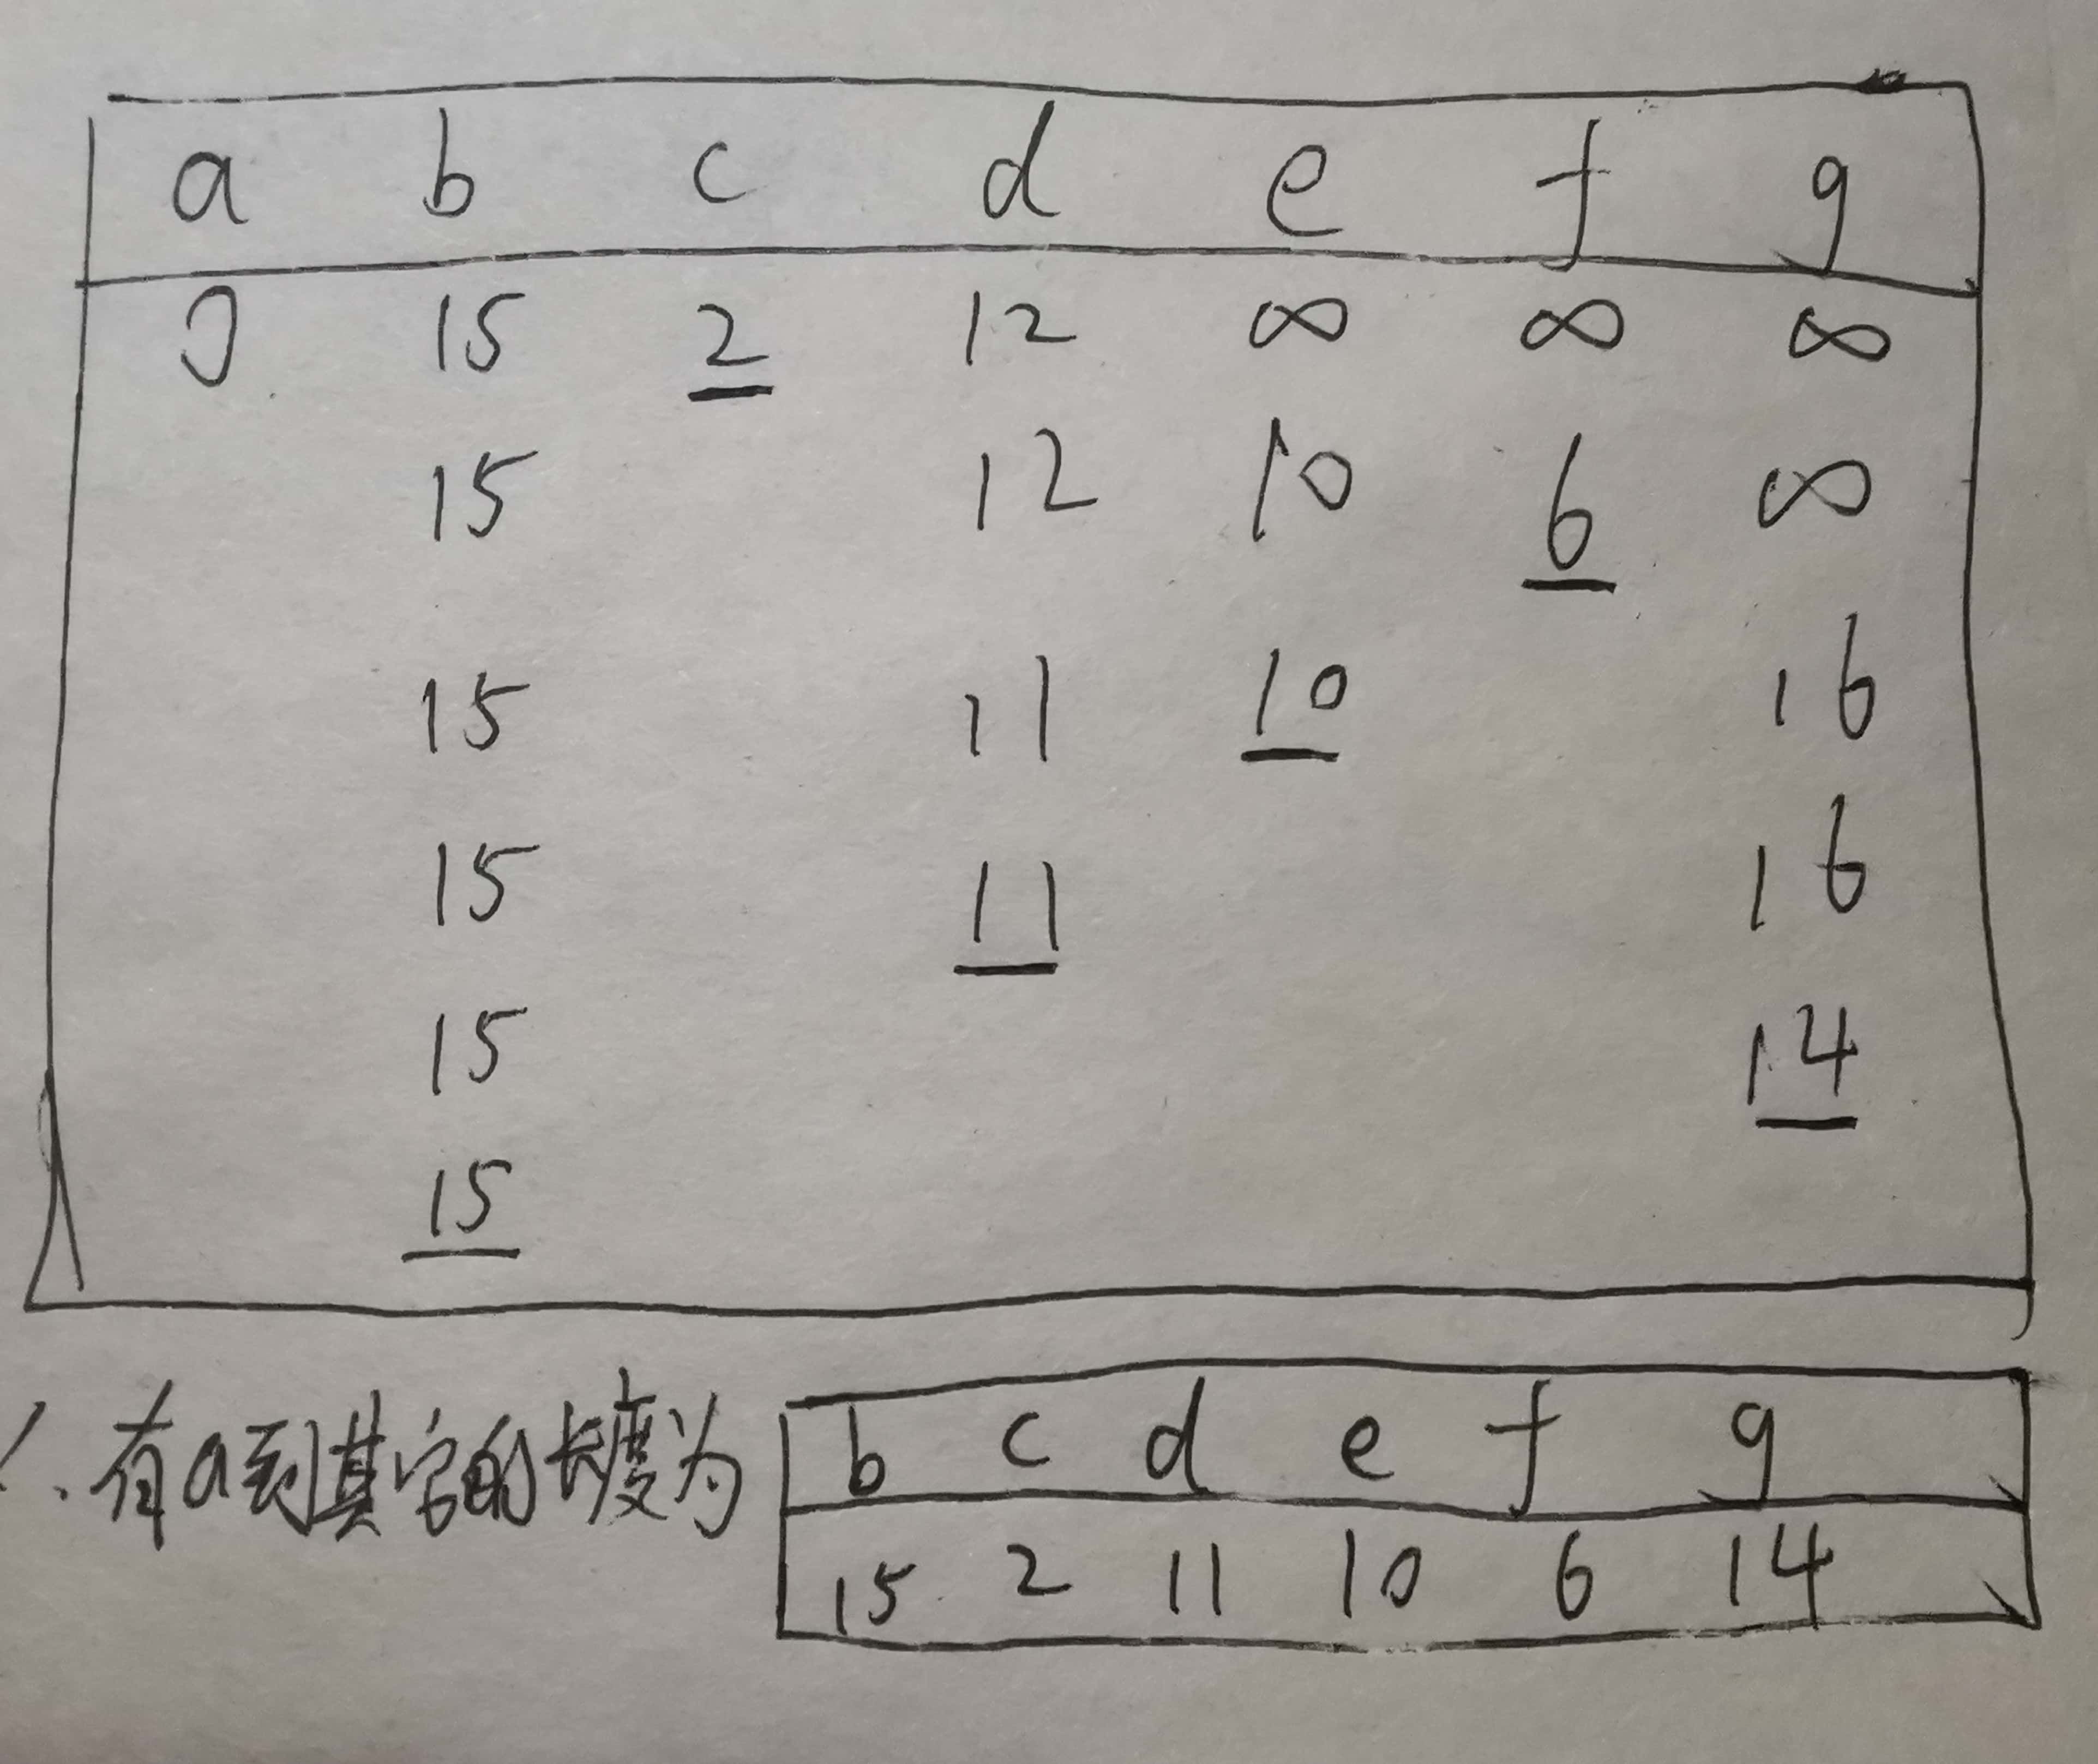 a b c d e f g
0 15 2 12 ∞ ∞ ∞
15 12 10 6 ∞
15 11 10 16
15 11 16
15 14
15
∴有a到其它的长度为
b c d e f g
15 2 11 10 6 14